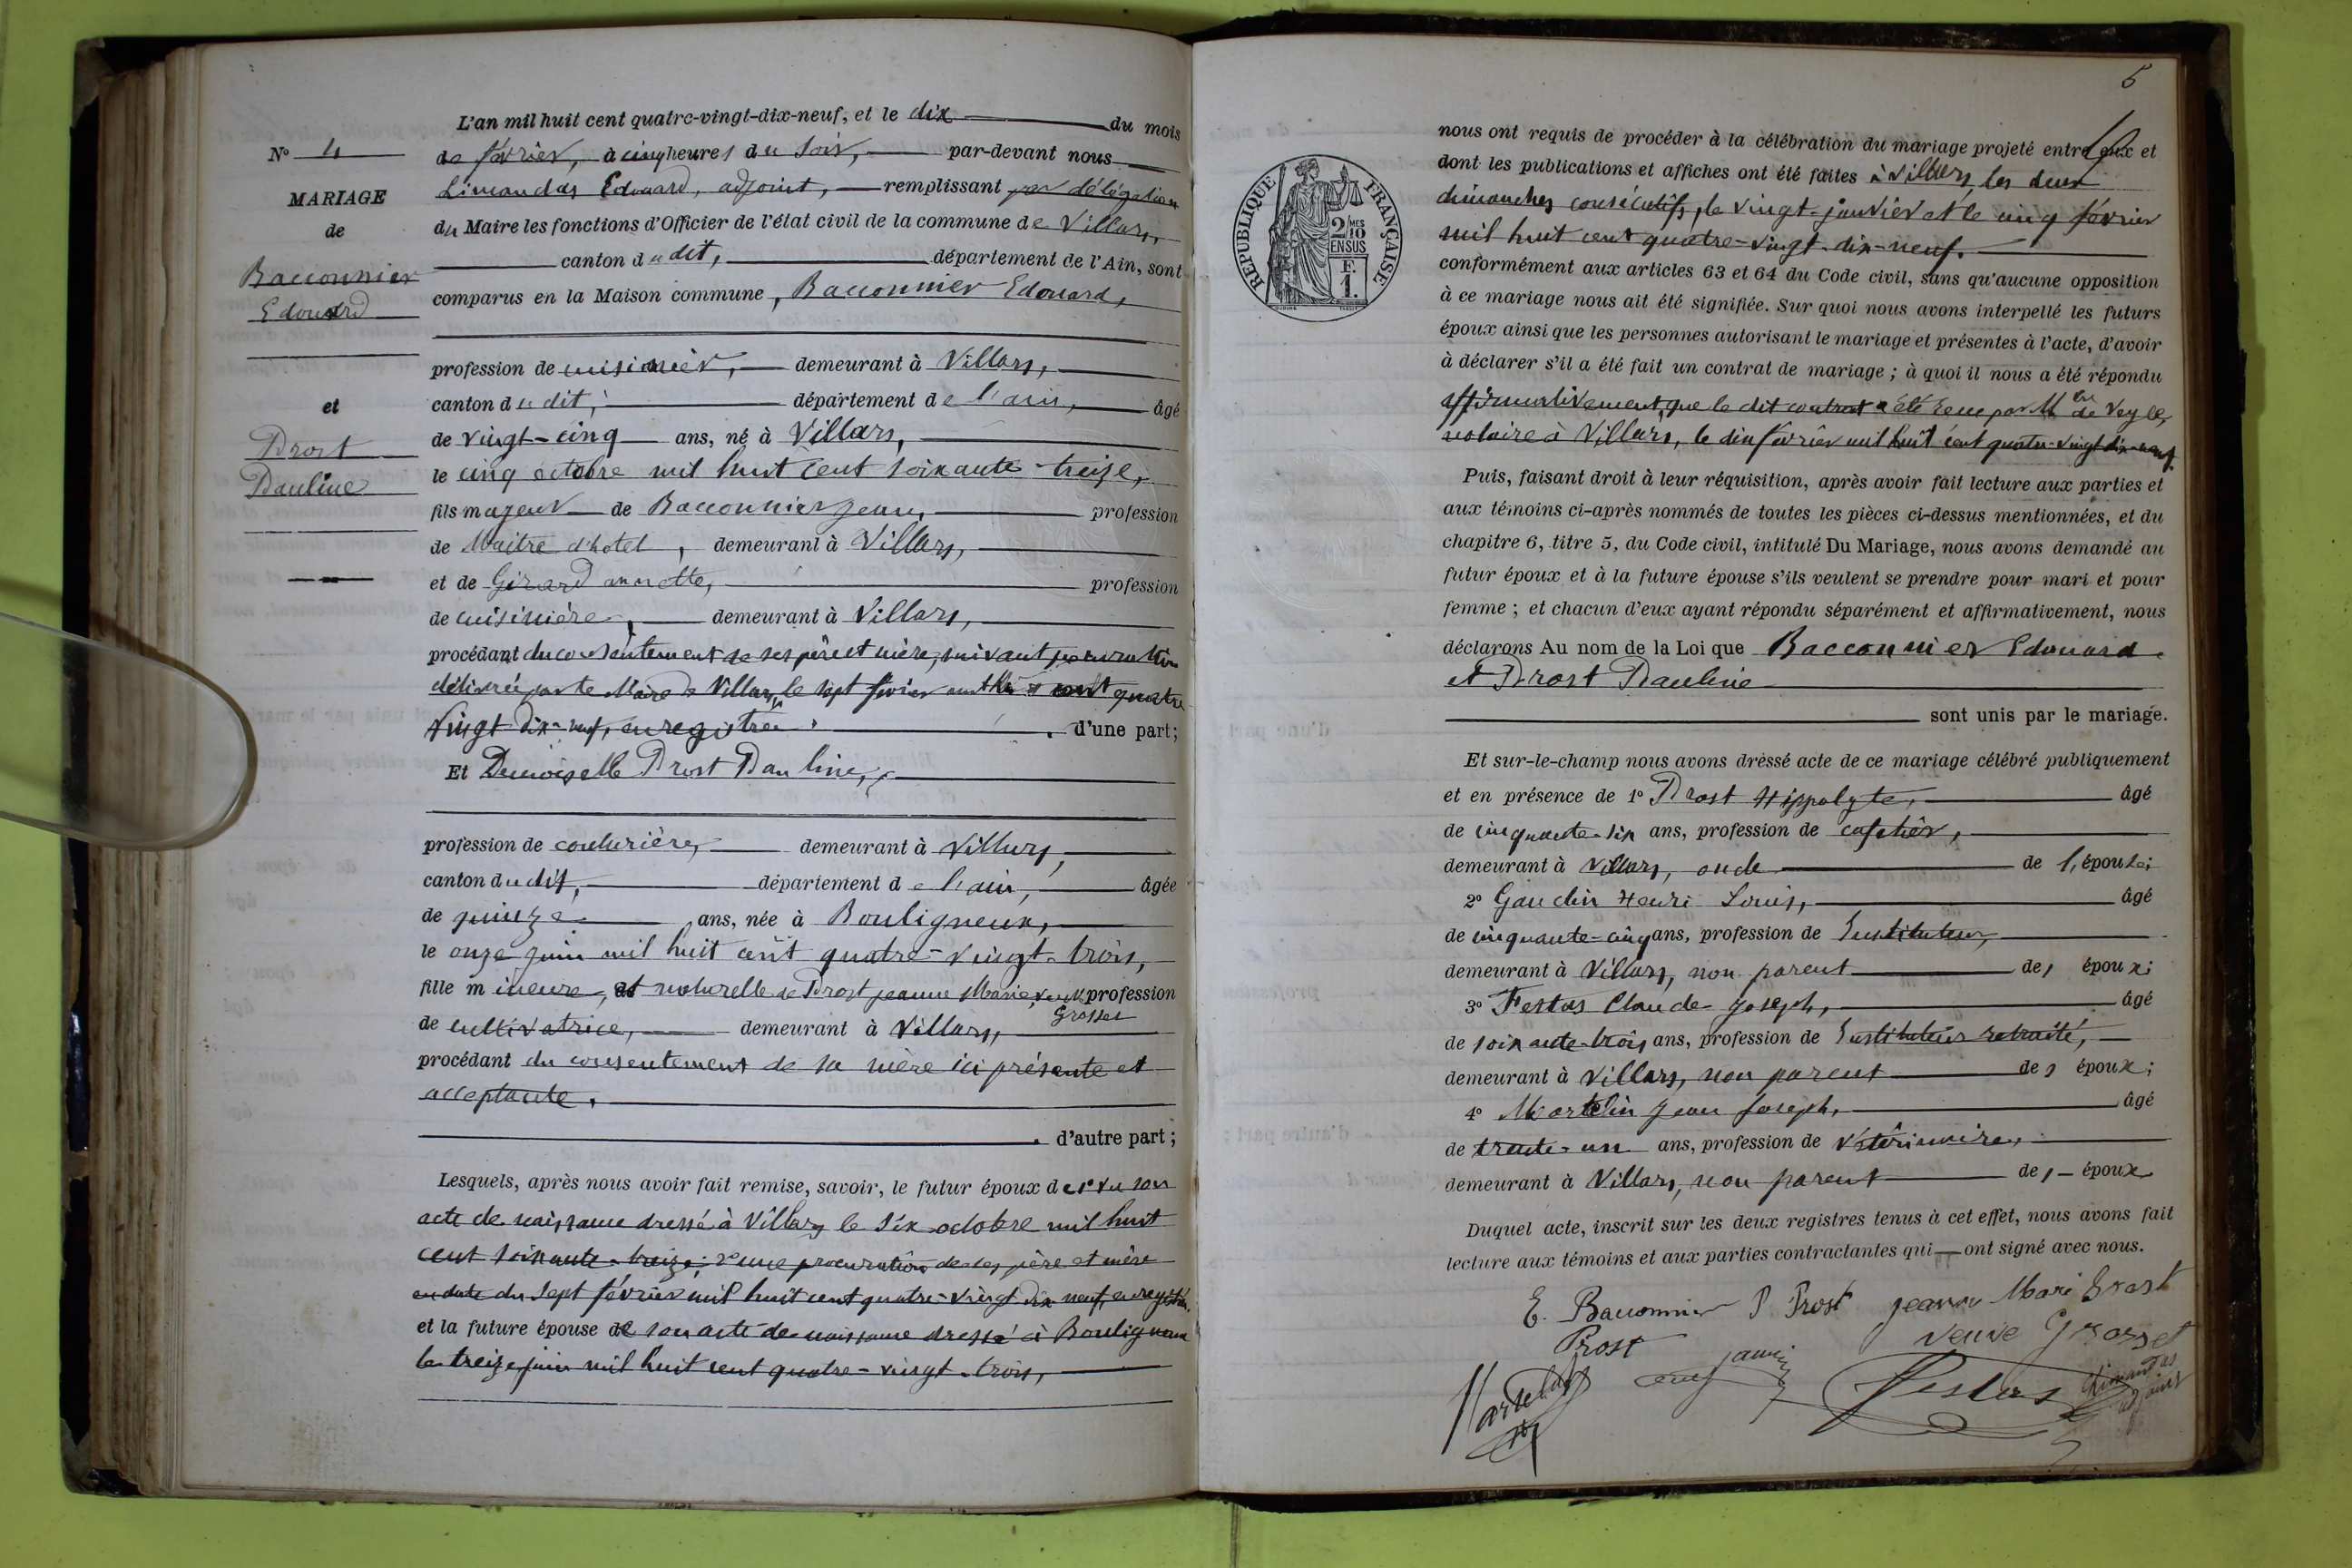 L'an mil huit cent quatre-vingt-dix-neuf, et le dix du mois
de février, à cinq heures du soir, par-devant nous
Limandas Edouard, adjoint, remplissant par délégation
du Maire les fonctions d'Officier de l'état civil de la commune de Villars,
canton du dit, département de l'Ain, sont
comparus en la Maison commune, Bacconnier Edouard,
profession de cuisinier, demeurant à Villars,
canton du dit, département de l'ain, âgé
de vingt-cinq ans, né à Villars,
le cinq octobre mil huit cent soixante-treize,
fils majeur de Bacconnier Jean, profession
de Maitre d'hotel, demeurant à Villars,
et de Girard annette, profession
de cuisinière, demeurant à Villars,
procédant du consentement de ses père et mère, suivant procuration
délivrée par le Maire de Villars, le sept février mil huit cent quatre
vingt dix-neuf, enregistrée. d'une part;
Et Demoiselle Prost Pauline,
profession de couturière, demeurant à Villars,
canton du dit, département de l'ain, âgée
de quinze ans, née à Bouligneux,
le onze juin mil huit cent quatre-vingt-trois,
fille mineure, et naturelle de Prost jeanne Marie, veuve profession
Grosset
de cultivatrice, demeurant à Villars,
procédant du consentement de sa mère ici présente et
acceptante.
d'autre part;
Lesquels, après nous avoir fait remise, savoir, le futur époux de 1° de son
acte de naissance dressé à Villars le six octobre mil huit
cent soixante-treize; 2° une procuration de ses père et mère
en date du sept février mil huit cent quatre-vingt dix neuf, enregistrée.
et la future épouse de son acte de naissance dressé à Bouligneux
le treize juin mil huit cent quatre-vingt-trois,
N° 4
MARIAGE
de
Bacconnier
Edouard
et
Prost
Pauline
5
REPUBLIQUE FRANÇAISE
2/10 MES
EN SUS
F.
1.
nous ont requis de procéder à la célébration du mariage projeté entre eux et
dont les publications et affiches ont été faites à Villars, les deux
dimanches consécutifs, le vingt-janvier et le cinq février
mil huit cent quatre-vingt-dix-neuf.
conformément aux articles 63 et 64 du Code civil, sans qu'aucune opposition
à ce mariage nous ait été signifiée. Sur quoi nous avons interpellé les futurs
époux ainsi que les personnes autorisant le mariage et présentes à l'acte, d'avoir
à déclarer s'il a été fait un contrat de mariage; à quoi il nous a été répondu
affirmativement, que le dit contrat a été reçu par M tre de Veyle,
notaire à Villars, le dix février mil huit cent quatre-vingt dix-neuf.
Puis, faisant droit à leur réquisition, après avoir fait lecture aux parties et
aux témoins ci-après nommés de toutes les pièces ci-dessus mentionnées, et du
chapitre 6, titre 5, du Code civil, intitulé Du Mariage, nous avons demandé au
futur époux et à la future épouse s'ils veulent se prendre pour mari et pour
femme; et chacun d'eux ayant répondu séparément et affirmativement, nous
déclarons Au nom de la Loi que Bacconnier Edouard
et Prost Pauline
sont unis par le mariage.
Et sur-le-champ nous avons dressé acte de ce mariage célébré publiquement
et en présence de 1° Prost Hippolyte, âgé
de cinquante-six ans, profession de cafetier,
demeurant à Villars, oncle de l'épouse;
2° Gaudin Henri Louis, âgé
de cinquante-cinq ans, profession de Instituteur,
demeurant à Villars, non parent des époux;
3° Festas Claude Joseph, âgé
de soixante-trois ans, profession de Instituteur retraité,
demeurant à Villars, non parent des époux;
4° Martelin Jean Joseph, âgé
de trente-un ans, profession de Vétérinaire,
demeurant à Villars, non parent des époux
Duquel acte, inscrit sur les deux registres tenus à cet effet, nous avons fait
lecture aux témoins et aux parties contractantes qui ont signé avec nous.
E. Bacconnier P. Prost jeanne Marie Prost
Prost veuve Grosset
Martelin Festas Limandas
adjoint